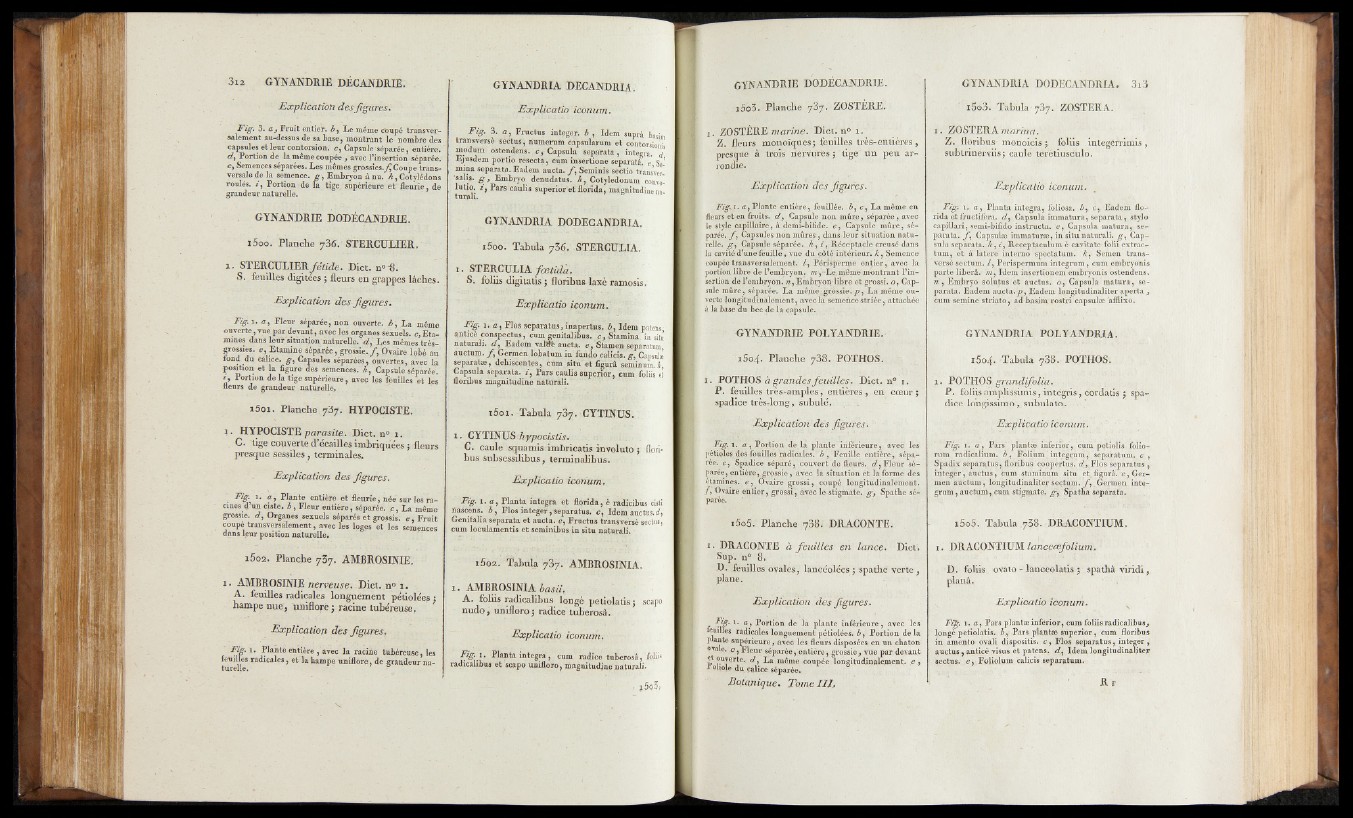 312 GYNANDRIE DÉCANDRIE.
Explication des figures.
Fig. 3. a, Fruit entier. b, Le même coupé transver-
salement au-dessus de sa base, montrant le nombre des
capsules et leur contorsion. c, Capsule séparée, entière.
d, Portion de la même coupée, avec l'insertion séparée.
e, Semences séparées. Les mêmes grossies. f, Coupe trans-
versale de la semence. g, Embryon à nu. h, Cotylédons
roulés. i, Portion de la tige supérieure et fleurie, de
grandeur naturelle.
GYNANDRIE DODÉCANDRIE.
1500. Planche 736. STERCULIER.
1. STERCULIER fétide. Dict. n° 8.
S. feuilles digitées; fleurs en grappes lâches.
Explication des figures.
Fig. 1. a, Fleur séparée, non ouverte. b, La même
ouverte, vue par devant, avec les organes sexuels. c, Eta-
mines dans leur situation naturelle. d, Les mêmes très-
grossies. e, Etamine séparée, grossie. f, Ovaire lobé au
fond du calice. g, Capsules séparées, ouvertes, avec la
position et la figure des semences. h, Capsule séparée.
i, Portion de la tige supérieure, avec les feuilles et les
fleurs de grandeur naturelle.
1501. Planche 737. HYPOCISTE.
1. HYPOCISTE parasite. Dict. n° 1.
C. tige couverte d'écailles imbriquées; fleurs
presque sessiles, terminales.
Explication des figures.
Fig. 1. a, Plante entière et fleurie, née sur les ra-
cines d'un ciste. b, Fleur entière, séparée. c, La même
grossie. d, Organes sexuels séparés et grossis. e, Fruit
coupé transversalement, avec les loges et les semences
dans leur position naturelle.
1502. Planche 737. AMBROSINIE.
1. AMBROSINIE nerveuse. Dict. n° 1.
A. feuilles radicales longuement pétiolées;
hampe nue, uniflore; racine tubéreuse.
Explication des figures.
Fig. 1. Plante entière, avec la racine tubéreuse, les
feuilles radicales, et la hampe uniflore, de grandeur na-
turelle.
GYNANDRIA DECANDRIA.
Explicatio iconum.
Fig. 3. a, Fructus integer. b, Idem suprà basim
transversè sectus, numerum capsularum et contorsionis
modum ostendens. c, Capsula separata, integra. d,
Ejusdem portio resecta, cum insertione separatâ. e, Se-
mina separata. Eadem aucta. f, Seminis sectio transver-
salis. g, Embryo denudatus. h, Cotyledonum convo-
lutio. i, Pars caulis superior et florida, magnitudine na-
turali.
GYNANDRIA DODECANDRIA.
1500. Tabula 736. STERCULIA.
1. STERCULIA fœtida.
S. foliis digitatis; floribus laxè ramosis.
Explicatio iconum.
Fig. 1. a, Flos separatus, inapertus. b, Idem patens,
anticè conspectus, cum genitalibus. c, Stamina in situ
naturali. d, Eadem valdè aucta. e, Stamen separatum,
auctum. f, Germen lobatum in fundo calicis. g, Capsulæ
separatæ, dehiscentes, cum situ et figurâ seminum. h,
Capsula separata. i, Pars caulis superior, cum foliis et
floribus magnitudine naturali.
1501. Tabula 737. CYTINUS.
1. CYTINUS hypocistis.
C. caule squamis imbricatis involuto; flori-
bus subsessilibus, terminalibus.
Explicatio iconum.
Fig. 1. a, Planta integra et florida, è radicibus cisti
nascens. b, Flos integer, separatus. c, Idem auctus. d,
Genitalia separata et aucta. e, Fructus transversè sectus,
cum loculamentis et seminibus in situ naturali.
1502. Tabula 737. AMBROSINIA.
1. AMBROSINIA basii.
A. foliis radicalibus longè petiolatis; scapo
nudo, unifloro; radice tuberosâ.
Explicatio iconum.
Fig. 1. Planta integra, cum radice tuberosâ, foliis
radicalibus et scapo unifloro, magnitudine naturali.
1503.
GYNANDRIE DODÉCANDRIE.
1503. Planche 737. ZOSTÈRE.
1. ZOSTÈRE marine. Dict. n° 1.
Z. fleurs monoïques; feuilles très-entières,
presque à trois nervures; tige un peu ar-
rondie.
Explication des figures.
Fig. 1. a, Plante entière, feuillée. b, c, La même en
fleurs et en fruits. d, Capsule non mûre, séparée, avec
le style capillaire, à demi-bifide. e, Capsule mûre, sé-
parée. f, Capsules non mûres, dans leur situation natu-
relle. g, Capsule séparée. h, i, Réceptacle creusé dans
la cavité d'une feuille, vue du côté intérieur. k, Semence
coupée transversalement. l, Périsperme entier, avec la
portion libre de l'embryon. m, Le même montrant l'in-
sertion de l'embryon. n, Embryon libre et grossi. o, Cap-
sule mûre, séparée. La même grossie. p, La même ou-
verte longitudinalement, avec la semence striée, attachée
à la base du bec de la capsule.
GYNANDRIE POLYANDRIE.
1504. Planche 738. POTHOS.
1. POTHOS à grandes feuilles. Dict. n° 1.
P. feuilles très-amples, entières, en cœur;
spadice très-long, subulé.
Explication des figures.
Fig. 1. a, Portion de la plante inférieure, avec les
pétioles des feuilles radicales. b, Feuille entière, sépa-
rée. c, Spadice séparé, couvert de fleurs. d, Fleur sé-
parée, entière, grossie, avec la situation et la forme des
étamines. e, Ovaire grossi, coupé longitudinalement.
f, Ovaire entier, grossi, avec le stigmate. g, Spathe sé-
parée.
1505. Planche 738. DRACONTE.
1. DRACONTE à feuilles en lance. Dict.
Sup. n° 8.
D. feuilles ovales, lancéolées; spathe verte,
plane.
Explication des figures.
Fig. 1. a, Portion de la plante inférieure, avec les
feuilles radicales longuement pétiolées. b, Portion de la
plante supérieure, avec les fleurs disposées en un chaton
ovale. c, Fleur séparée, entière, grossie, vue par devant
et ouverte. d, La même coupée longitudinalement. e,
Foliole du calice séparée.
Botanique. Tome III.
GYNANDRIA DODECANDRIA. 313
1503. Tabula 737. ZOSTERA.
1. ZOSTERA marina.
Z. floribus monoicis; foliis integerrimis,
subtrinerviis; caule teretiusculo.
Explicatio iconum.
Fig. 1. a, Planta integra, foliosa. b, c, Eadem flo-
rida et fructifera. d, Capsula immatura, separata, stylo
capillari, semi-bifido instructa. e, Capsula matura, se-
parata. f, Capsulæ immaturæ, in situ naturali. g, Cap-
sula separata. h, i, Receptaculum è cavitate folii extrac-
tum, et à latere interno spectatum. k, Semen trans-
versè sectum. l, Perispermum integrum, cum embryonis
parte liberâ. m, Idem insertionem embryonis ostendens.
n, Embryo solutus et auctus. o, Capsula matura, se-
parata. Eadem aucta. p, Eadem longitudinaliter aperta,
cum semine striato, ad basim rostri capsulæ affixo.
GYNANDRIA POLYANDRIA.
1504. Tabula 738. POTHOS.
1. POTHOS grandifolia.
P. foliis amplissimis, integris, cordatis; spa-
dice longissimo, subulato.
Explicatio iconum.
Fig. 1. a, Pars plantæ inferior, cum petiolis folio-
rum radicalium. b, Folium integrum, separatum. c,
Spadix separatus, floribus coopertus. d, Flos separatus,
integer, auctus, cum staminum situ et figurâ. e, Ger-
men auctum, longitudinaliter sectum. f, Germen inte-
grum, auctum, cum stigmate. g, Spatha separata.
1505. Tabula 738. DRACONTIUM.
1. DRACONTIUM lanceæfolium.
D. foliis ovato-lanceolatis; spathâ viridi,
planâ.
Explicatio iconum.
Fig. 1. a, Pars plantæ inferior, cum foliis radicalibus,
longè petiolatis. b, Pars plantæ superior, cum floribus
in amento ovali dispositis. c, Flos separatus, integer,
auctus, anticè visus et patens. d, Idem longitudinaliter
sectus. e, Foliolum calicis separatum.
R r